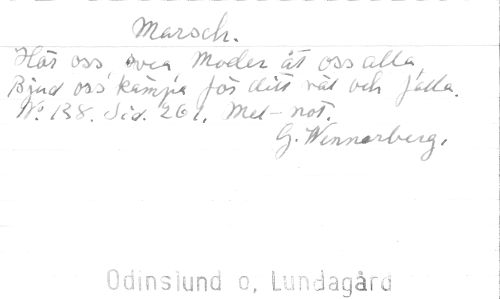 Marsch.
Hör oss Svea Moder åt oss alla,
Bjud oss kämpa för ditt väl och falla.
No 138. Sid. 261. Mel-not.
G. Wennerberg.
Odinslund o, Lundagård